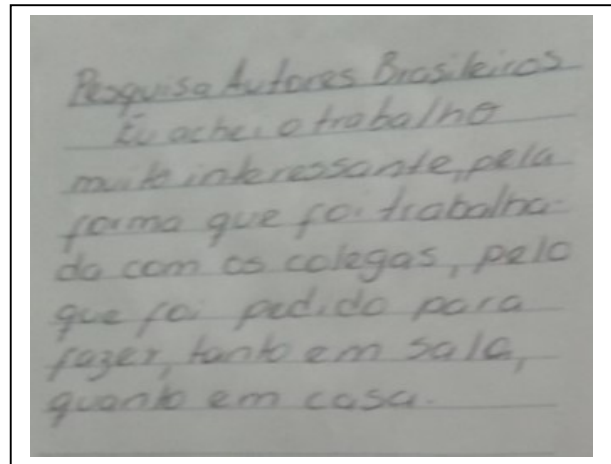 Pesquisa Autores Brasileiros
Eu achei o trabalho
muito interessante, pela
forma que foi trabalha-
do com os colegas, pelo
que foi pedido para
fazer, tanto em sala,
quanto em casa.